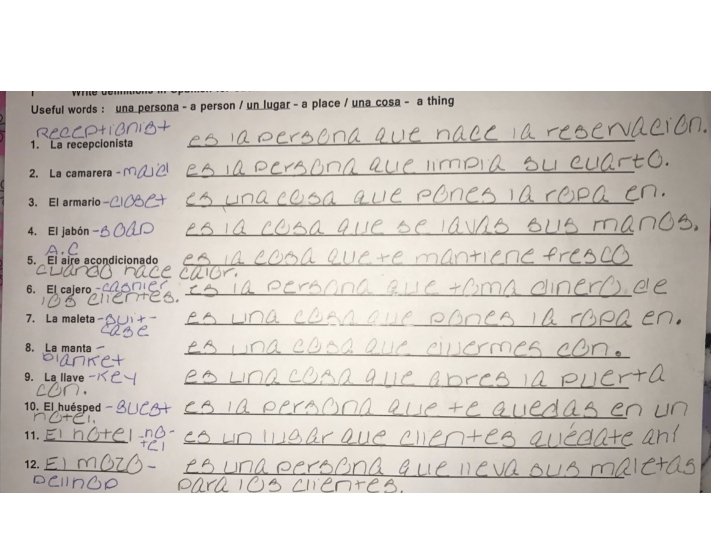 Useful words : una persona - a person / un lugar - a place / una cosa - a thing
Receptionist
1. La recepcionista es la persona que hace la reservación.
2. La camarera - maid es la persona que limpia su cuarto.
3. El armario - closet es una cosa que pones la ropa en.
4. El jabón - soap es la cosa que se lavas sus manos.
A.C
5. El aire acondicionado es la cosa que te mantiene fresco
cuando hace calor.
6. El cajero - cashier es la persona que toma dinero de
los clientes.
7. La maleta - suit- es una cosa que pones la ropa en.
case
8. La manta - es una cosa que duermes con.
blanket
9. La llave - Key es una cosa que abres la puerta
con.
10. El huésped - guest es la persona que te quedas en un
hotel.
11. El hotel - ho- es un lugar que clientes quédate ahí
tel
12. El mozo - es una persona que lleva sus maletas
Bellhop para los clientes.